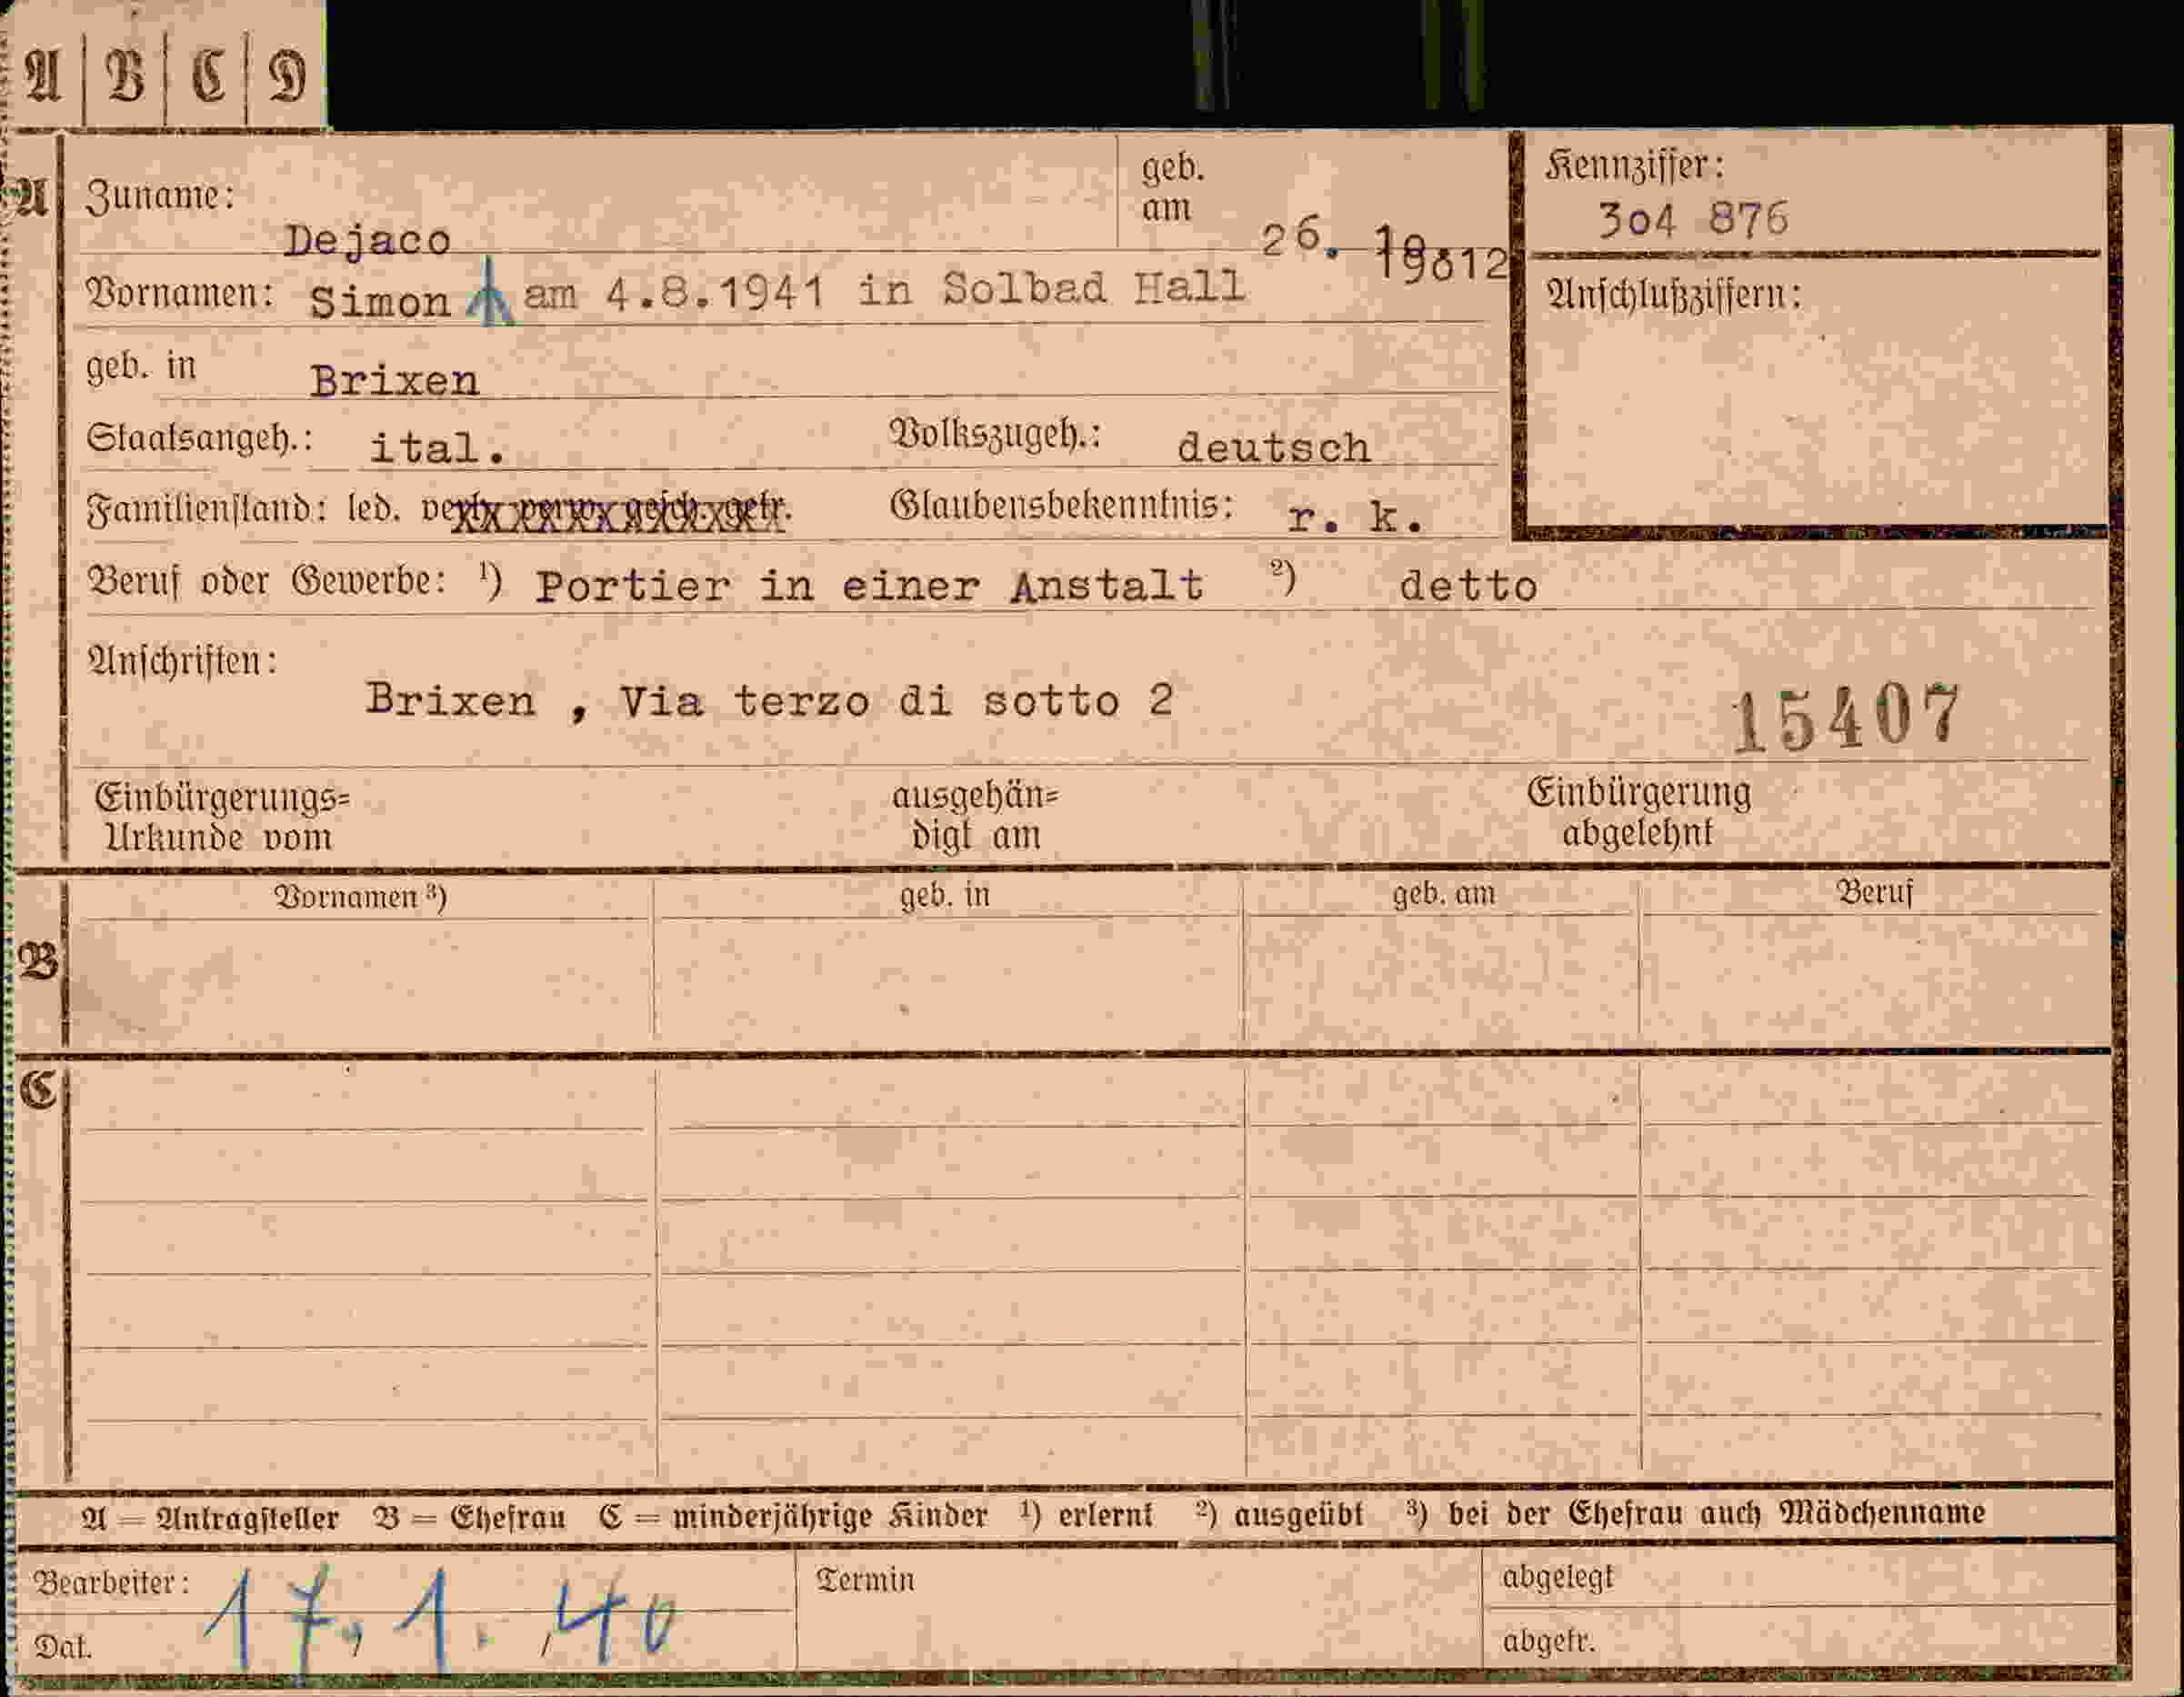 A | B | C | D
A
Zuname:
Dejaco
geb.
am
26.
Kennziffer:
304 876
Vornamen: Simon am 4.8.1941 in Solbad Hall
Anschlußziffern:
geb. in Brixen
Staatsangeh.: ital. Volkszugeh.: deutsch
Familienstand: led. Glaubensbekenntnis: r. k.
Beruf oder Gewerbe: ¹) Portier in einer Anstalt ²) detto
Anschriften:
Brixen , Via terzo di sotto 2
15407
Einbürgerungs=
Urkunde vom
ausgehän=
digt am
Einbürgerung
abgelehnt
B
Vornamen ³) geb. in geb. am Beruf
C
A = Antragsteller B = Ehefrau C = minderjährige Kinder ¹) erlernt ²) ausgeübt ³) bei der Ehefrau auch Mädchenname
Bearbeiter:
Dat.
17. 1. 40
Termin
abgelegt
abgetr.